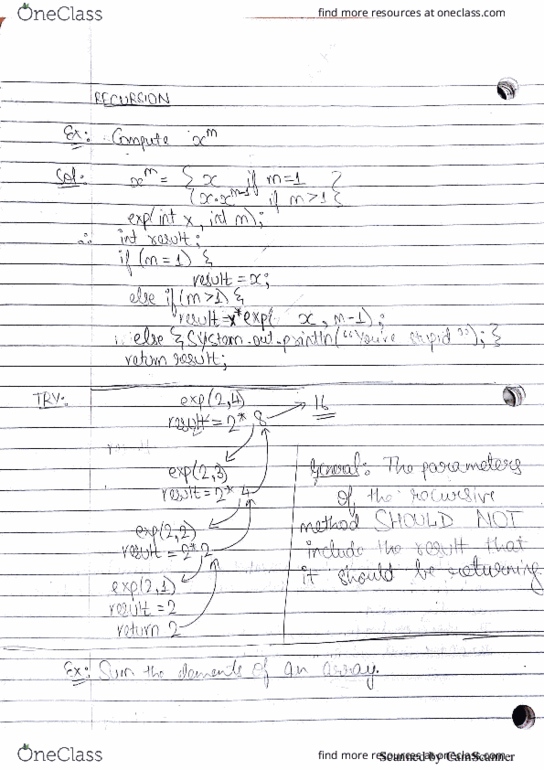 OneClass
find more resources at oneclass.com
RECURSION
Ex: Compute x^m
Sol: x^m = { x if m=1 }
{ x·x^m-1 if m>1 }
exp(int x, int m);
∴ int result;
if (m=1) {
result = x;
else if (m>1) {
result = x* exp( x, m-1);
else { System.out.println("You're stupid"); }
return result;
TRY: exp(2,4)
result = 2* 8 → 16
exp(2,3)
result = 2* 4
exp(2,2)
result = 2* 2
exp(2,1)
result = 2
return 2
General: The parameters
of the recursive
method SHOULD NOT
include the result that
it should be returning
Ex: Sum the elements of an array.
OneClass
find more resources at oneclass.com
Scanned by CamScanner